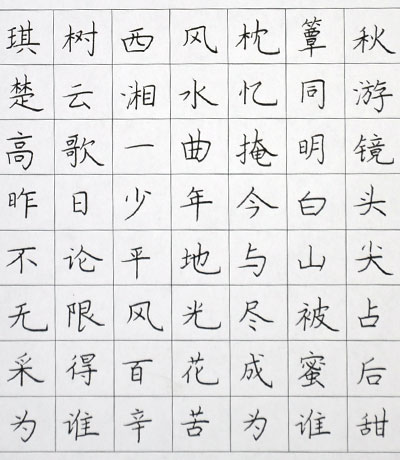 琪树西风枕簟秋
楚云湘水忆同游
高歌一曲掩明镜
昨日少年今白头
不论平地与山尖
无限风光尽被占
采得百花成蜜后
为谁辛苦为谁甜